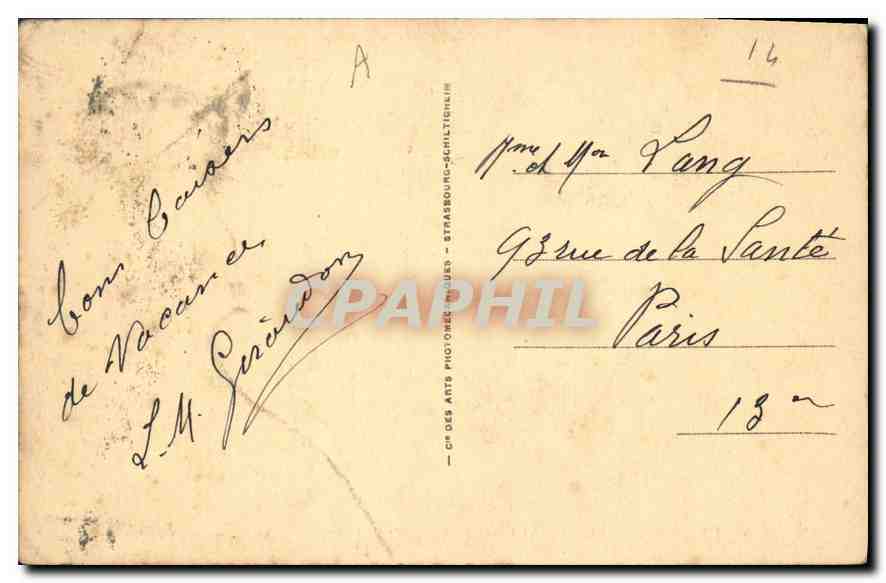 A
14
bons baisers
de Vacances
L. M. Girandon
— Cie DES ARTS PHOTOMECANIQUES - STRASBOURG-SCHILTIGHEIM
Mme et Mr Lang
93 rue de la Santé
Paris
13e
CPAPHIL